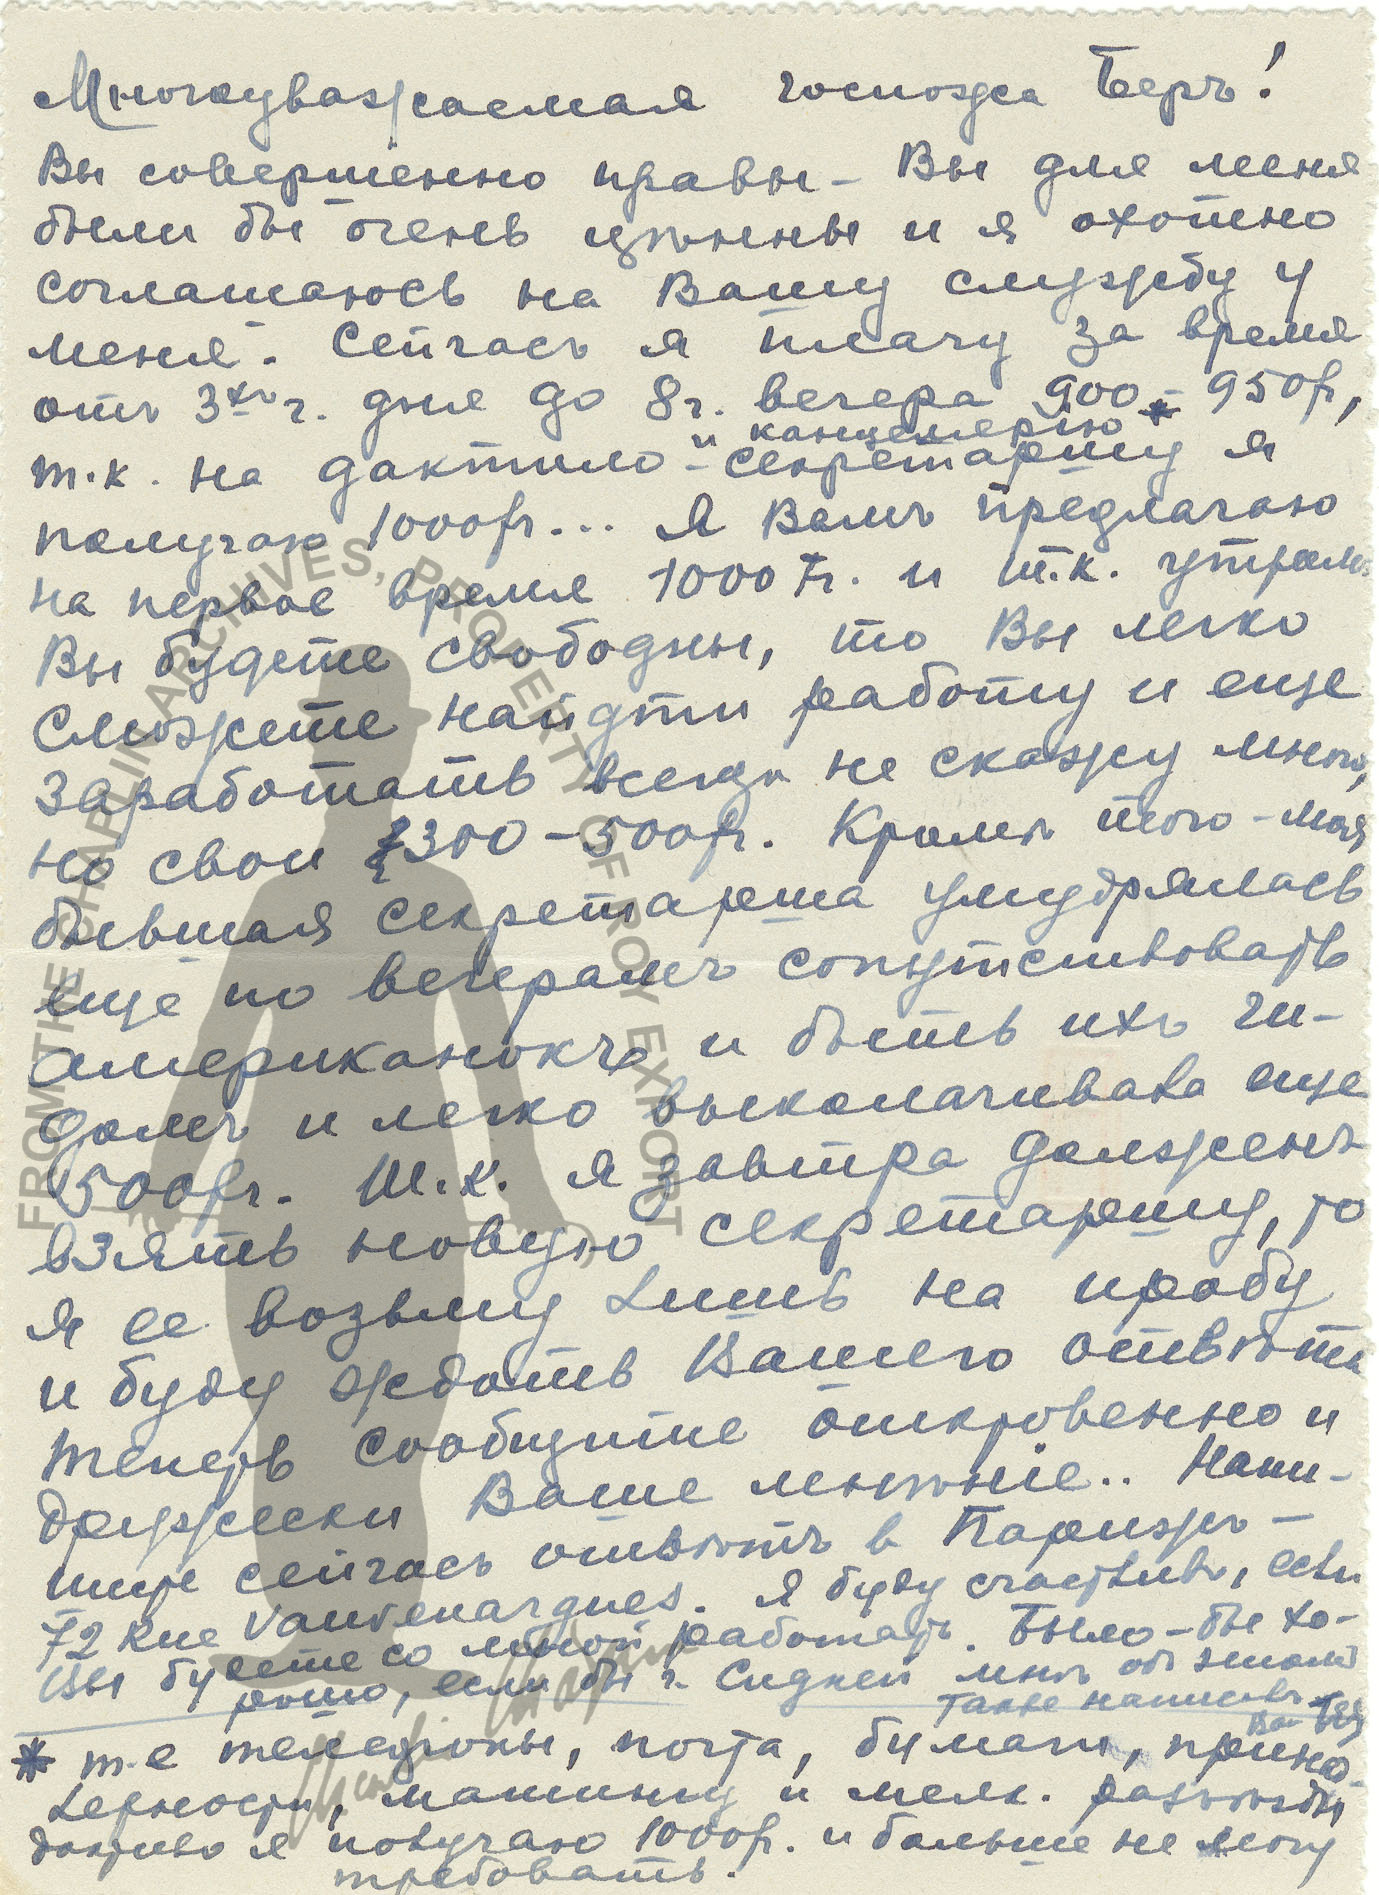 Многоуважаемая госпожа Беръ!
Вы совершенно правы – Вы для меня
были бы очень цѣнны и я охотно
соглашаюсь на Вашу службу у
меня. Сейчасъ я плачу за время
отъ 3хъ ч. дня до 8 ч. вечера 900 * – 950 fr,
т.к. на дактило - и канцелярію секретаршу я
получаю 1000 fr... Я Вамъ предлагаю
на первое время 1000 Fr. и т.к. утромъ
Вы будете свободны, то Вы легко
сможете найдти работу и еще
заработать всегда не скажу много,
но свои 300 – 500 fr. Кромѣ того - моя
бывшая секретарша умудрялась
еще по вечерамъ сопутствовать
американокъ и быть ихъ ги-
домъ и легко выколачивала еще
500 fr. Т.к. я завтра долженъ
взять новую секретаршу, то
я ее возьму лишь на пробу
и буду ждать Вашего отвѣта
теперь сообщите откровенно и
дружески Ваше мнѣніе.. Напи-
шите сейчасъ отвѣтъ в Парижъ –
72 Rue Vauvenargues. Я буду счастливъ, если
Вы будете со мной работать. Было-бы хо-
рошо, если бы г. Сидней мнѣ объ этомъ
также написалъ
* т.е телефоны, почта, бумаги, принад-
лежности, машинку и мелк. разъѣзды
дактило я получаю 1000 fr. и больше не могу
требовать.
FROM THE CHAPLIN ARCHIVES, PROPERTY OF ROY EXPORT